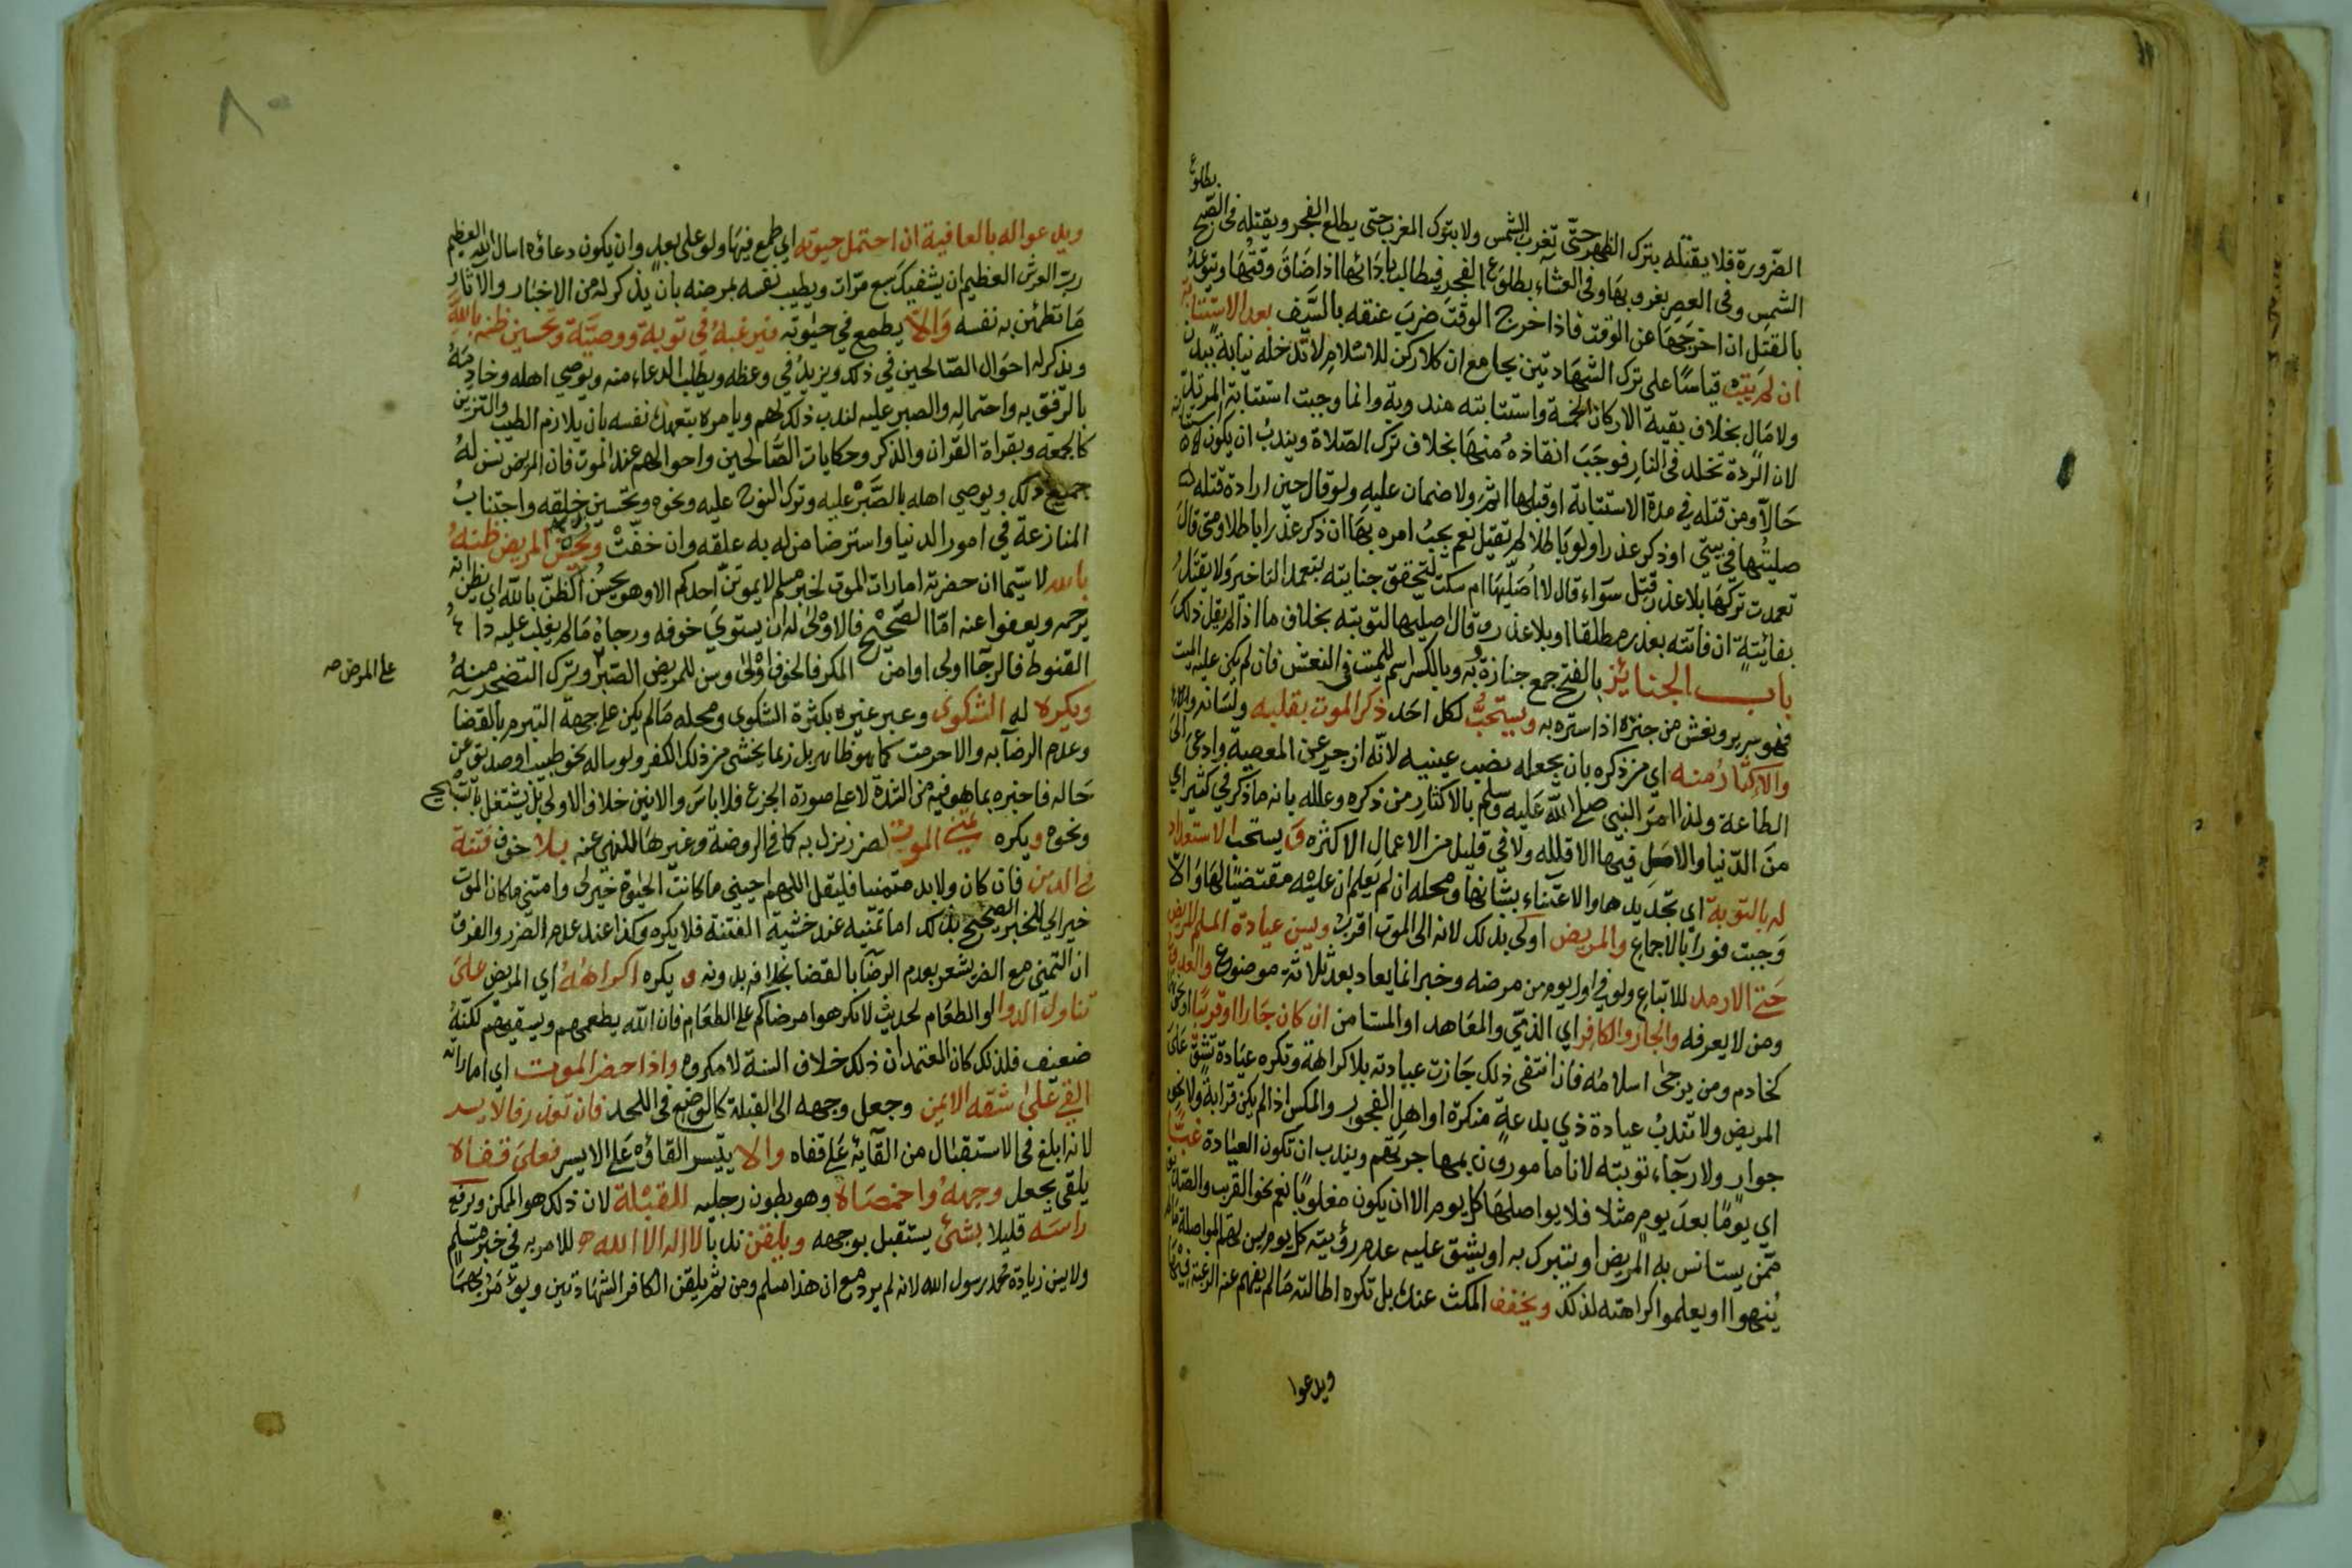 الضرورة فلا يقتله بترك الظهر حتى تغرب الشمس ولا بترك المغرب حتى يطلع الفجر ويقتله في الصبح بطلوع
الشمس وفي العصر بغروبها وفي العشاء بطلوع الفجر فيطالب بادائها اذا ضاق وقتها ويتوعد
بالقتل ان اخرجها عن الوقت فاذا خرج الوقت ضرب عنقه بالسيف بعد الاستتابة
ان لم يتب قياسا على ترك الشهادتين بجامع ان كلا ركن للاسلام لا تدخله نيابة ببدن
ولا مال بخلاف بقية الاركان الخمسة واستتابته مندوبة وانما وجبت استتابة المرتد
لان الردة تخلد في النار فوجب انقاذه منها بخلاف ترك الصلاة ويندب ان يكون استتابته
حالا ومن قتله في مدة الاستتابة او قبلها اثم ولا ضمان عليه ولو قال حين ارادة قتله
صليتها في بيتي او ذكر عذرا ولو باطلا لم يقتل نعم يجب امره بها ان ذكر عذرا باطلا ومتى قال
تعمدت تركها بلا عذر قتل سواء قال لا اصليها ام سكت لتحقق جنايته بتعمد التاخير ولا يقتل
بفائتة ان فاتته بعذر مطلقا او بلا عذر وقال اصليها لتوبته بخلاف ما اذا لم يقل ذلك
باب الجنائز بالفتح جمع جنازة به وبالكسر اسم للميت في النعش فان لم يكن عليه الميت
فهو سرير ونعش من جنزه اذا ستره به ويستحب لكل احد ذكر الموت بقلبه ولسانه
والاكثار منه اي من ذكره بان يجعله نصب عينيه لانه ازجر عن المعصية وادعى الى
الطاعة ولذا امر النبي صلى الله عليه وسلم بالاكثار من ذكره وعلله بانه ما ذكر في كثير اي
من الدنيا والامل فيها الا قلله ولا في قليل من الاعمال الا كثره و يستحب الاستعداد
له بالتوبة اي تجديدها والاعتناء بشانها ومحله ان لم يعلم ان عليه مقتضيا لها والا
وجبت فورا بالاجماع والمريض اولى بذلك لانه الى الموت اقرب ويسن عيادة المسلم المريض
حتى الارمد للاتباع ولو في اول يوم من مرضه وخبر انما يعاد بعد ثلاثة موضوع والعدو
ومن لا يعرفه والجار والكافر اي الذمي والمعاهد او المستامن ان كان جارا او قريبا او نحوه
كخادم ومن يرجى اسلامه فان انتفى ذلك جازت عيادته بلا كراهة وتكره عيادة تشق على
المريض ولا تندب عيادة ذي بدعة منكرة او اهل الفجور والمكس اذا لم يكن قرابة ولا نحو
جوار ولا رجاء توبته لانا مامورون بمهاجرتهم ويندب ان تكون العيادة غبا
اي يوما بعد يوم مثلا فلا يواصلها كل يوم الا ان يكون مغلوبا نعم نحو القريب والصديق
ممن يستانس به المريض او يتبرك به او يشق عليه عدم رؤيته كل يوم يسن لهم المواصلة ما لم
ينهوا او يعلموا كراهته لذلك ويخفف المكث عنده بل تكره اطالته ما لم يفهم عنه الرغبة فيها
ويدعوا
٨٠
ويدعو له بالعافية ان احتمل حيوته اي طمع فيها ولو على بعد وان يكون دعاؤه اسال الله العظيم
رب العرش العظيم ان يشفيك سبع مرات ويطيب نفسه بمرضه بان يذكر له من الاخبار والآثار
ما تطمئن به نفسه والا يطمع في حيوته فيرغبه في توبة ووصية وتحسين ظنه بالله
ويذكر له احوال الصالحين في ذلك ويزيد في وعظه ويطلب الدعاء منه ويوصي اهله وخادمه
بالرفق به واحتماله والصبر عليه لندب ذلك لهم ويامره بتعهد نفسه بان يلازم الطيب والتزين
كالجمعة وبقراة القران والذكر وحكايات الصالحين واحوالهم عند الموت فان المريض يسن له
جميع ذلك ويوصي اهله بالصبر عليه وترك النوح عليه ونحوه وتحسين خلقه واجتناب
المنازعة في امور الدنيا واسترضا من له به علقة وان خفت ويحسن المريض ظنه
بالله لا سيما ان حضرته امارات الموت لخبر مسلم لا يموتن احدكم الا وهو يحسن الظن بالله اي يظن انه
يرحمه ويعفوا عنه اما الصحيح فالاولى له ان يستوي خوفه ورجاه ما لم يغلب عليه داء
القنوط فالرجا اولى او امن المكر فالخوف اولى وسن للمريض الصبر وترك التضجر منه
على المرض صح
ويكره له الشكوى وعبر غيره بكثرة الشكوى ومحله ما لم يكن على جهة التبرم بالقضا
وعدم الرضا به والا حرمت كما هو ظاهر بل ربما يخشى من ذلك الكفر ولو ساله نحو طبيب او صديق عن
حاله فاخبره بما هو فيه من الشدة لا على صورة الجزع فلا باس والانين خلاف الاولى بل يشتغل بالتسبيح
ونحوه ويكره تمني الموت لضر نزل به كما في الروضة وغيرها للنهي عنه بلا خوف فتنة
في الدين فان كان ولا بد متمنيا فليقل اللهم احييني ما كانت الحيوة خيرا لي وامتني ما كان الموت
خيرا لي للخبر الصحيح بذلك اما تمنيه عند خشية الفتنة فلا يكره وكذا عند عدم الضرر والفرق
ان التمني مع الضر يشعر بعدم الرضا بالقضا بخلافه بدونه و يكره اكراهه اي المريض على
تناول الدوا لو والطعام لحديث لا تكرهوا مرضاكم على الطعام فان الله يطعمهم ويسقيهم لكنه
ضعيف فلذلك كان المعتمد ان ذلك خلاف السنة لا مكروه واذا حضر الموت اي اماراته
القي على شقه الايمن وجعل وجهه الى القبلة كالوضع في اللحد فان تعذر فالايسر
لانه ابلغ في الاستقبال من القائه على قفاه والا يتيسر القاؤه على الايسر فعلى قفاه
يلقى بجعل وجهه واخمصاه وهو بطون رجليه للقبلة لان ذلك هو الممكن ويرفع
راسه قليلا بشئ يستقبل بوجهه ويلقن ندبا لا اله الا الله للامر به في خبر مسلم
ولا يسن زيادة محمد رسول الله لانه لم يرد مع ان هذا مسلم ومن ثم يلقن الكافر الشهادتين ويؤمر بهما